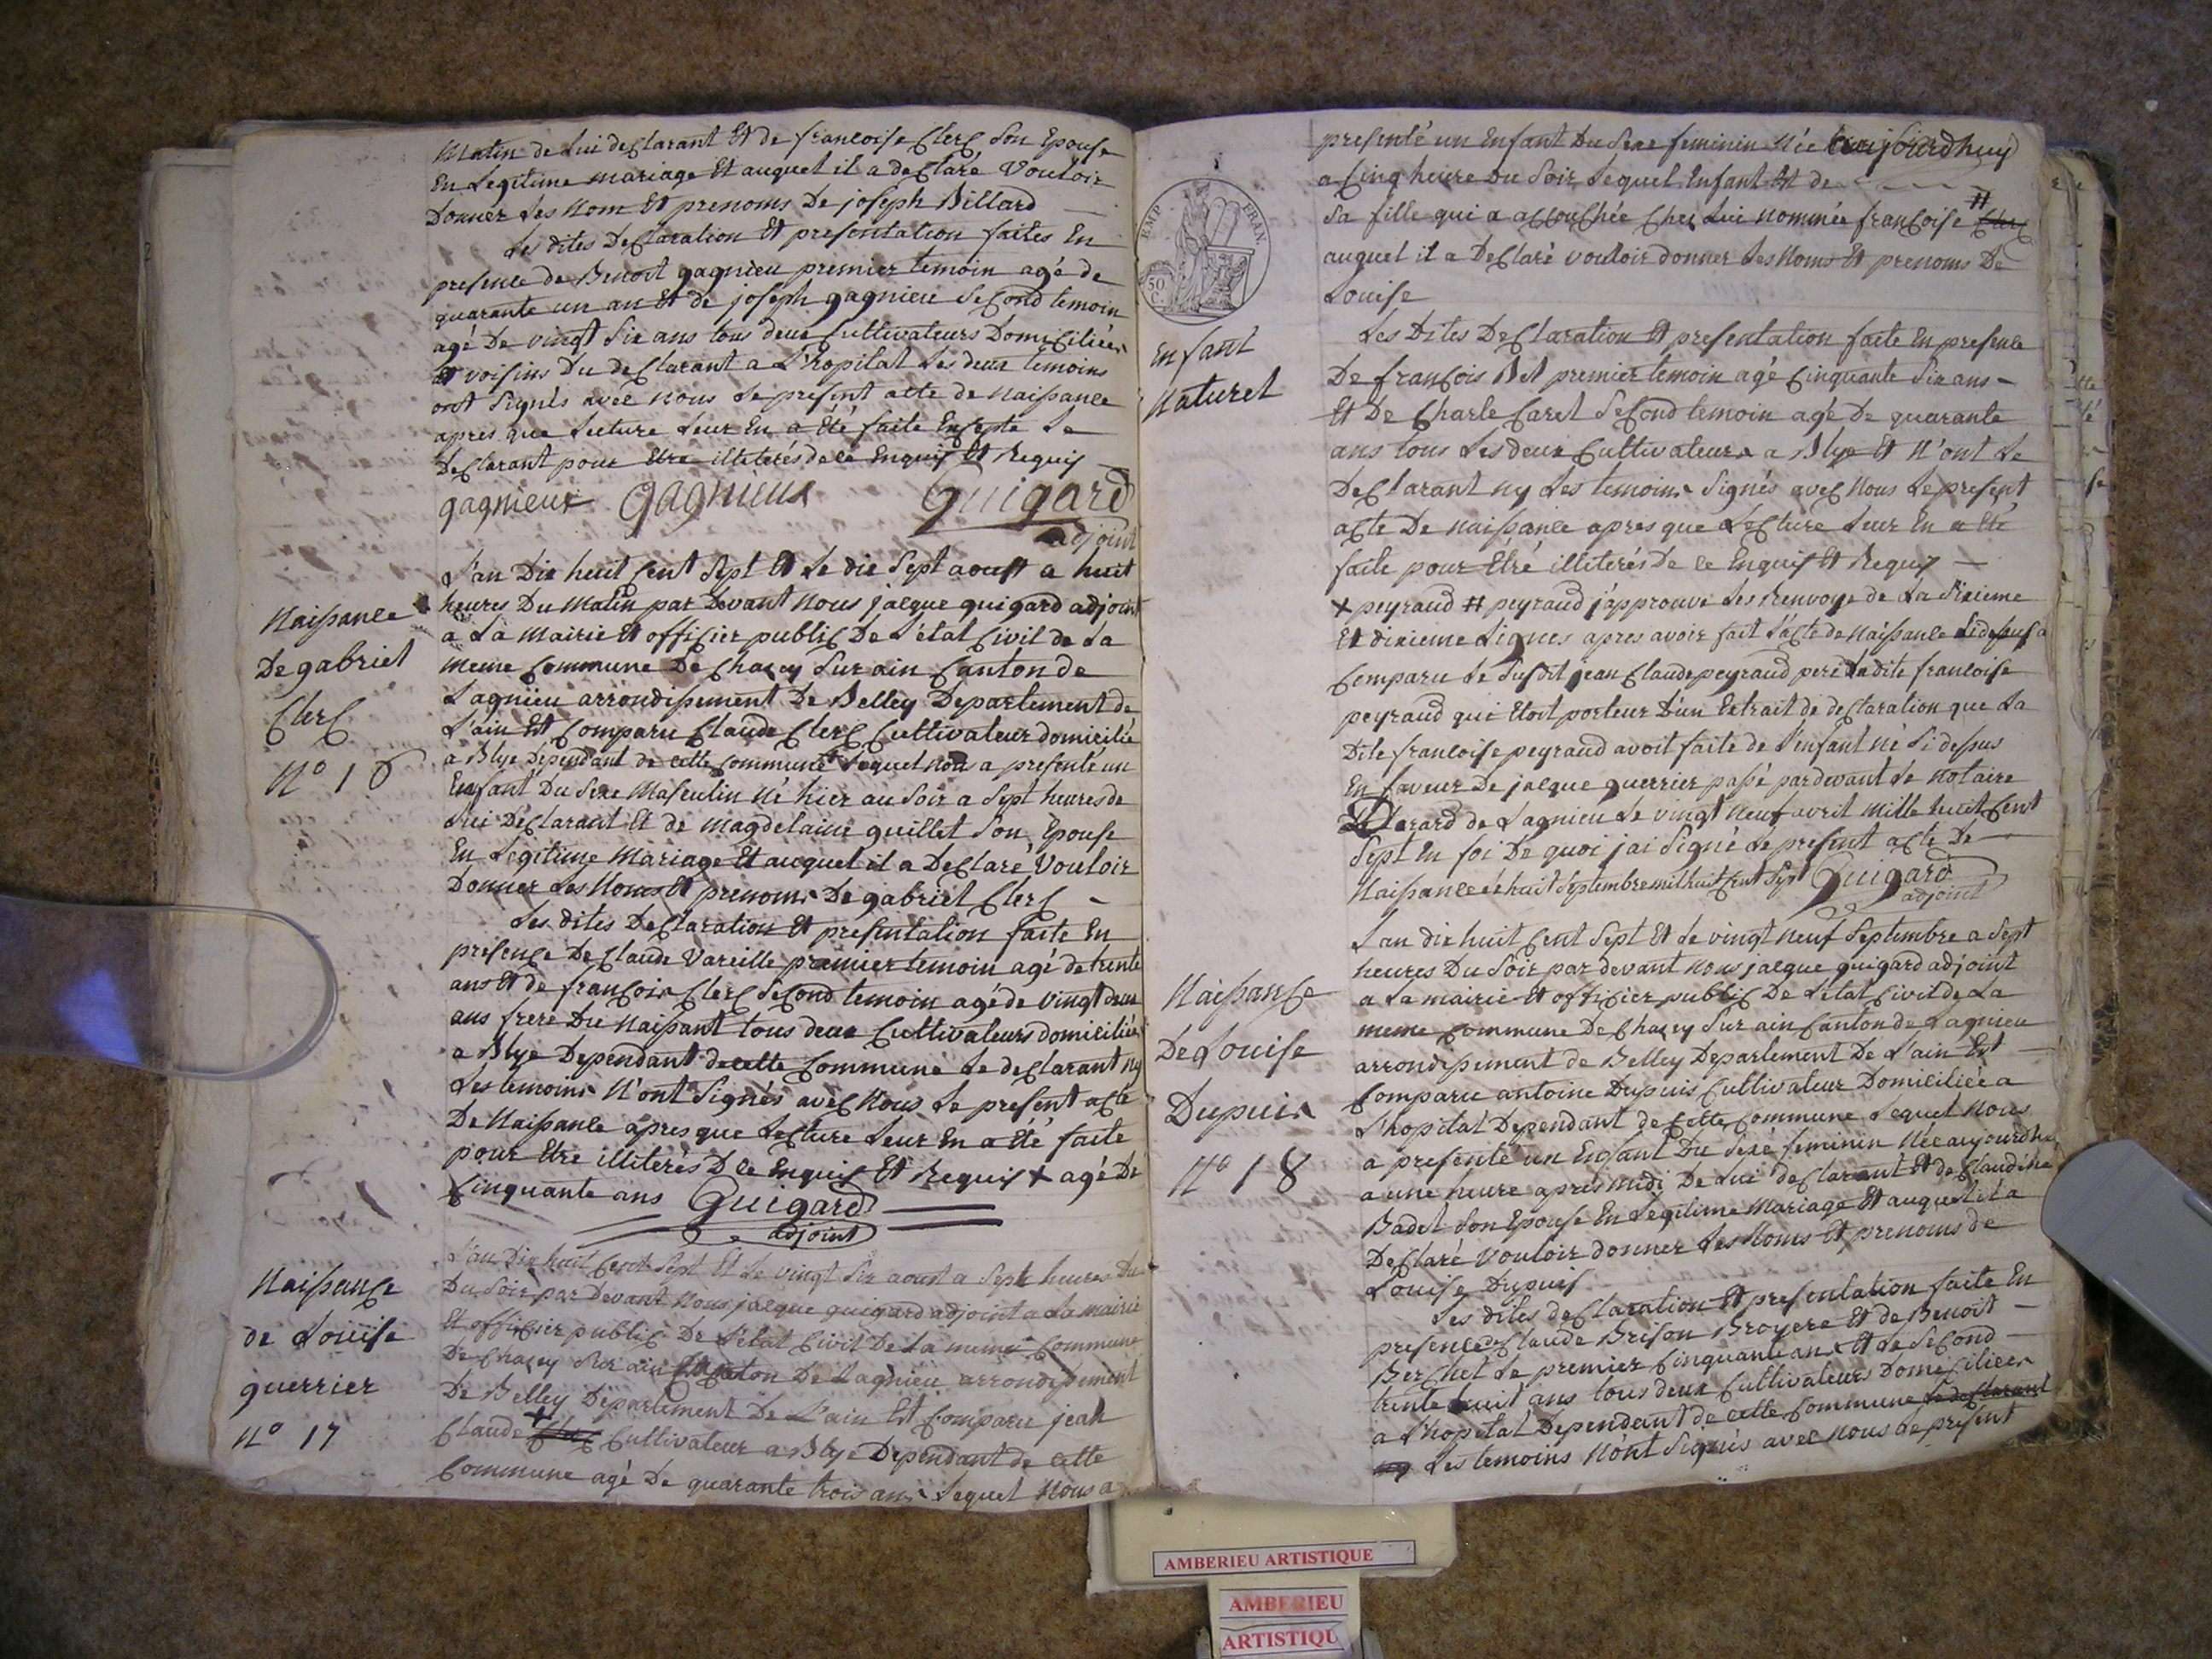 Matin de Lui declarant Et de francoise Clerc Son Epouse
En Legitime mariage Et auquel il a declaré Vouloir
Donner Les Nom Et prenoms De joseph Billard
Les dites Declaration Et presentation faites En
presence de Benoit gagnieu premier temoin agé de
quarante un an Et de joseph gagnieu Second temoin
agé De vingt Six ans tous deux Cultivateurs Domiciliés
Et voisins Du declarant a L'hopital Les deux temoins
ont Signés avec nous Le present acte de Naissance
apres que Lecture Leur En a Eté faite Excepté Le
Declarant pour Etre illiterés de ce Enquis Et Requis
gagnieux Gagnieux Guigard
adjoint
Naissance
De gabriel
Clerc
N° 16
L'an Dix huit Cent Sept Et Le dix Sept aoust a huit
heures Du Matin par Devant Nous jacque guigard adjoint
a La Mairie Et officier public De L'état Civil de La
meme Commune De Chazey Sur ain Canton de
Lagnieu arrondissement De Belley Departement de
L'ain Est Comparu Claude Clerc Cultivateur domicilié
a Blye Dependant de cette Commune Lequel Nous a presenté un
Enfant Du Sexe Masculin Né hier au Soir a Sept heures de
Lui Declarant Et de Magdelaine guillet Son Epouse
En Legitime Mariage Et auquel il a Declaré Vouloir
Donner Les Noms Et prenoms De gabriel Clerc
Les dites Declaration Et presentation faite En
presence De Claude Vareille premier temoin agé de trente
ans Et de françois Clerc Second temoin agé de Vingt deux
ans frere Du Naissant tous deux Cultivateurs domiciliés
a Blye Dependant de cette Commune Le declarant ny
Les temoins N'ont Signés avec Nous Le present acte
De Naissance apres que Lecture Leur En a Eté faite
pour Etre illiterés De ce Enquis Et Requis + agé De
Cinquante ans Guigard
adjoint
Naissance
de Louise
guerrier
N° 17
L'an Dix huit Cent Sept Et Le vingt Six aoust a Sept heures Du
Du Soir par Devant Nous jacque guigard adjoint a La mairie
Et officier public De L'état Civil De La meme Commune
De Chazey Sur ain Canton De Lagnieu arrondissement
De Belley Departement De L'ain Est Comparu jean
Claude + Clerc Cultivateur a Blye Dependant de cette
Commune agé De quarante trois ans Lequel Nous a
EMP. FRAN.
50
C.
Enfant
Naturel
presenté un Enfant Du Sexe feminin Née aujourdhuy
a Cinq heure Du Soir Lequel Enfant Est de
Sa fille qui a accouchée Chez Lui nommée françoise # Clerc
auquel il a Declaré vouloir donner Les Noms Et prenoms De
Louise
Les Dites Declaration Et presentation faite En presence
De françois Bel premier temoin agé Cinquante Six ans
Et De Charle Caret Second temoin agé De quarante
ans tous Les deux Cultivateurs a Blye Et N'ont Le
Declarant ny Les temoins Signés avec Nous Le present
acte De Naissance apres que Lecture Leur En a Eté
faite pour Etre illiterés De ce Enquis Et Requis
+ peyraud # peyraud j'approuve Les Renvoye de La Sixieme
Et dixieme Lignes apres avoir fait L'acte de Naissance Sidessus a
Comparu Le Susdit jean Claude peyraud pere Ladite francoise
peyraud qui Etoit porteur D'un Extrait de declaration que La
Dite francoise peyraud avoit faite de L'enfant né Si dessus
En faveur De jacque guerrier passé pardevant Le Notaire
de Lagnieu Le vingt Neuf avril Mille huit Cent
Sept En foi De quoi jai Signé Le present acte De
Naissance Le huit Septembre mil huit Cent Sept Guigard
adjoint
Naissance
De Louise
Dupuis
N° 18
L'an dix huit Cent Sept Et Le vingt Neuf Septembre a Sept
heures Du Soir par devant Nous jacque guigard adjoint
a La mairie Et officier public De L'état Civil de La
meme Commune De Chazey Sur ain Canton de Lagnieu
arrondissement de Belley Departement De L'ain Est
Comparu antoine Dupuis Cultivateur Domiciliée a
L'hopital Dependant de Cette Commune Lequel Nous
a presenté un Enfant Du Sexe feminin Née aujourdhu
a une heure apres midi De Lui declarant Et de Claudine
Badet Son Epouse En Legitime Mariage Et auquel il a
Declaré Vouloir donner Les Noms Et prenoms de
Louise Dupuis
Les dites declaration Et presentation faite En
presence de Claude Brison Broyere Et de Benoit
Berchet Le premier Cinquante ans Et Le Second
trente huit ans tous deux Cultivateurs Domiciliés
a L'hopital Dependant de cette Commune Le declarant
ny Les temoins N'ont Signés avec Nous Le present
AMBERIEU ARTISTIQUE
AMBERIEU
ARTISTIQU